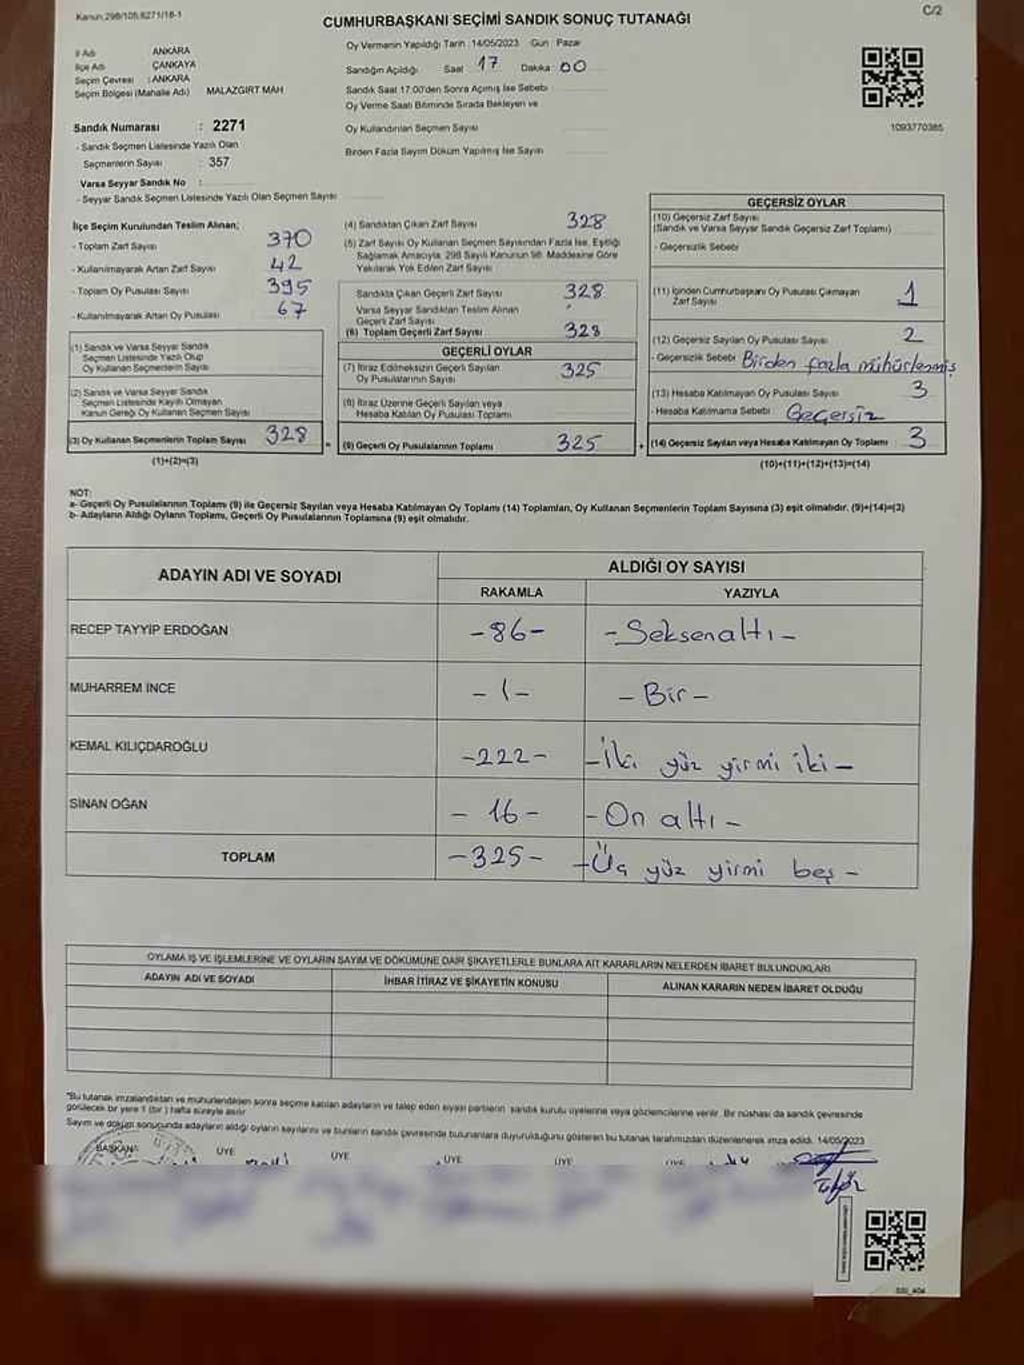 Kanun:298/105,6271/18-1
C/2
CUMHURBAŞKANI SEÇİMİ SANDIK SONUÇ TUTANAĞI
İl Adı ANKARA
İlçe Adı ÇANKAYA
Seçim Çevresi : ANKARA
Seçim Bölgesi (Mahalle Adı) MALAZGİRT MAH
Sandık Numarası : 2271
- Sandık Seçmen Listesinde Yazılı Olan
Seçmenlerin Sayısı : 357
Varsa Seyyar Sandık No :
- Seyyar Sandık Seçmen Listesinde Yazılı Olan Seçmen Sayısı
Oy Vermenin Yapıldığı Tarih : 14/05/2023 Gün : Pazar
Sandığın Açıldığı Saat 17 Dakika : 00
Sandık Saat 17.00'den Sonra Açılmış İse Sebebi
Oy Verme Saati Bitiminde Sırada Bekleyen ve
Oy Kullandırılan Seçmen Sayısı
Birden Fazla Sayım Döküm Yapılmış İse Sayısı
1093770385
İlçe Seçim Kurulundan Teslim Alınan;
- Toplam Zarf Sayısı 370
- Kullanılmayarak Artan Zarf Sayısı 42
- Toplam Oy Pusulası Sayısı 395
- Kullanılmayarak Artan Oy Pusulası 67
(1) Sandık ve Varsa Seyyar Sandık
Seçmen Listesinde Yazılı Olup
Oy Kullanan Seçmenlerin Sayısı
(2) Sandık ve Varsa Seyyar Sandık
Seçmen Listesinde Kayıtlı Olmayan
Kanun Gereği Oy Kullanan Seçmen Sayısı
(3) Oy Kullanan Seçmenlerin Toplam Sayısı 328
(1)+(2)=(3)
(4) Sandıktan Çıkan Zarf Sayısı 328
(5) Zarf Sayısı Oy Kullanan Seçmen Sayısından Fazla İse, Eşitliği
Sağlamak Amacıyla, 298 Sayılı Kanunun 98. Maddesine Göre
Yakılarak Yok Edilen Zarf Sayısı
Sandıkta Çıkan Geçerli Zarf Sayısı 328
Varsa Seyyar Sandıktan Teslim Alınan
Geçerli Zarf Sayısı
(6) Toplam Geçerli Zarf Sayısı 328
GEÇERLİ OYLAR
(7) İtiraz Edilmeksizin Geçerli Sayılan
Oy Pusulalarının Sayısı 325
(8) İtiraz Üzerine Geçerli Sayılan veya
Hesaba Katılan Oy Pusulası Toplamı
= (9) Geçerli Oy Pusulalarının Toplamı 325
GEÇERSİZ OYLAR
(10) Geçersiz Zarf Sayısı
(Sandık ve Varsa Seyyar Sandık Geçersiz Zarf Toplamı)
- Geçersizlik Sebebi
(11) İçinden Cumhurbaşkanı Oy Pusulası Çıkmayan
Zarf Sayısı 1
(12) Geçersiz Sayılan Oy Pusulası Sayısı 2
- Geçersizlik Sebebi Birden fazla mühürlenmiş
(13) Hesaba Katılmayan Oy Pusulası Sayısı 3
- Hesaba Katılmama Sebebi Geçersiz
+ (14) Geçersiz Sayılan veya Hesaba Katılmayan Oy Toplamı 3
(10)+(11)+(12)+(13)=(14)
NOT:
a- Geçerli Oy Pusulalarının Toplamı (9) ile Geçersiz Sayılan veya Hesaba Katılmayan Oy Toplamı (14) Toplamları, Oy Kullanan Seçmenlerin Toplam Sayısına (3) eşit olmalıdır. (9)+(14)=(3)
b- Adayların Aldığı Oyların Toplamı, Geçerli Oy Pusulalarının Toplamına (9) eşit olmalıdır.
ADAYIN ADI VE SOYADI
ALDIĞI OY SAYISI
RAKAMLA YAZIYLA
RECEP TAYYİP ERDOĞAN -86- -Seksenaltı-
MUHARREM İNCE -1- -Bir-
KEMAL KILIÇDAROĞLU -222- -İki yüz yirmi iki-
SİNAN OĞAN -16- -On altı-
TOPLAM -325- -Üç yüz yirmi beş-
OYLAMA İŞ VE İŞLEMLERİNE VE OYLARIN SAYIM VE DÖKÜMÜNE DAİR ŞİKAYETLERLE BUNLARA AİT KARARLARIN NELERDEN İBARET BULUNDUKLARI
ADAYIN ADI VE SOYADI İHBAR İTİRAZ VE ŞİKAYETİN KONUSU ALINAN KARARIN NEDEN İBARET OLDUĞU
*Bu tutanak imzalandıktan ve mühürlendikten sonra seçime katılan adayların ve talep eden siyasi partilerin sandık kurulu üyelerine veya gözlemcilerine verilir. Bir nüshası da sandık çevresinde
görülecek bir yere 1 (bir) hafta süreyle asılır
Sayım ve döküm sonucunda adayların aldığı oyların sayılarını ve bunların sandık çevresinde bulunanlara duyurulduğunu gösteren bu tutanak tarafımızdan düzenlenerek imza edildi. 14/05/2023
BAŞKAN ÜYE ÜYE ÜYE ÜYE ÜYE